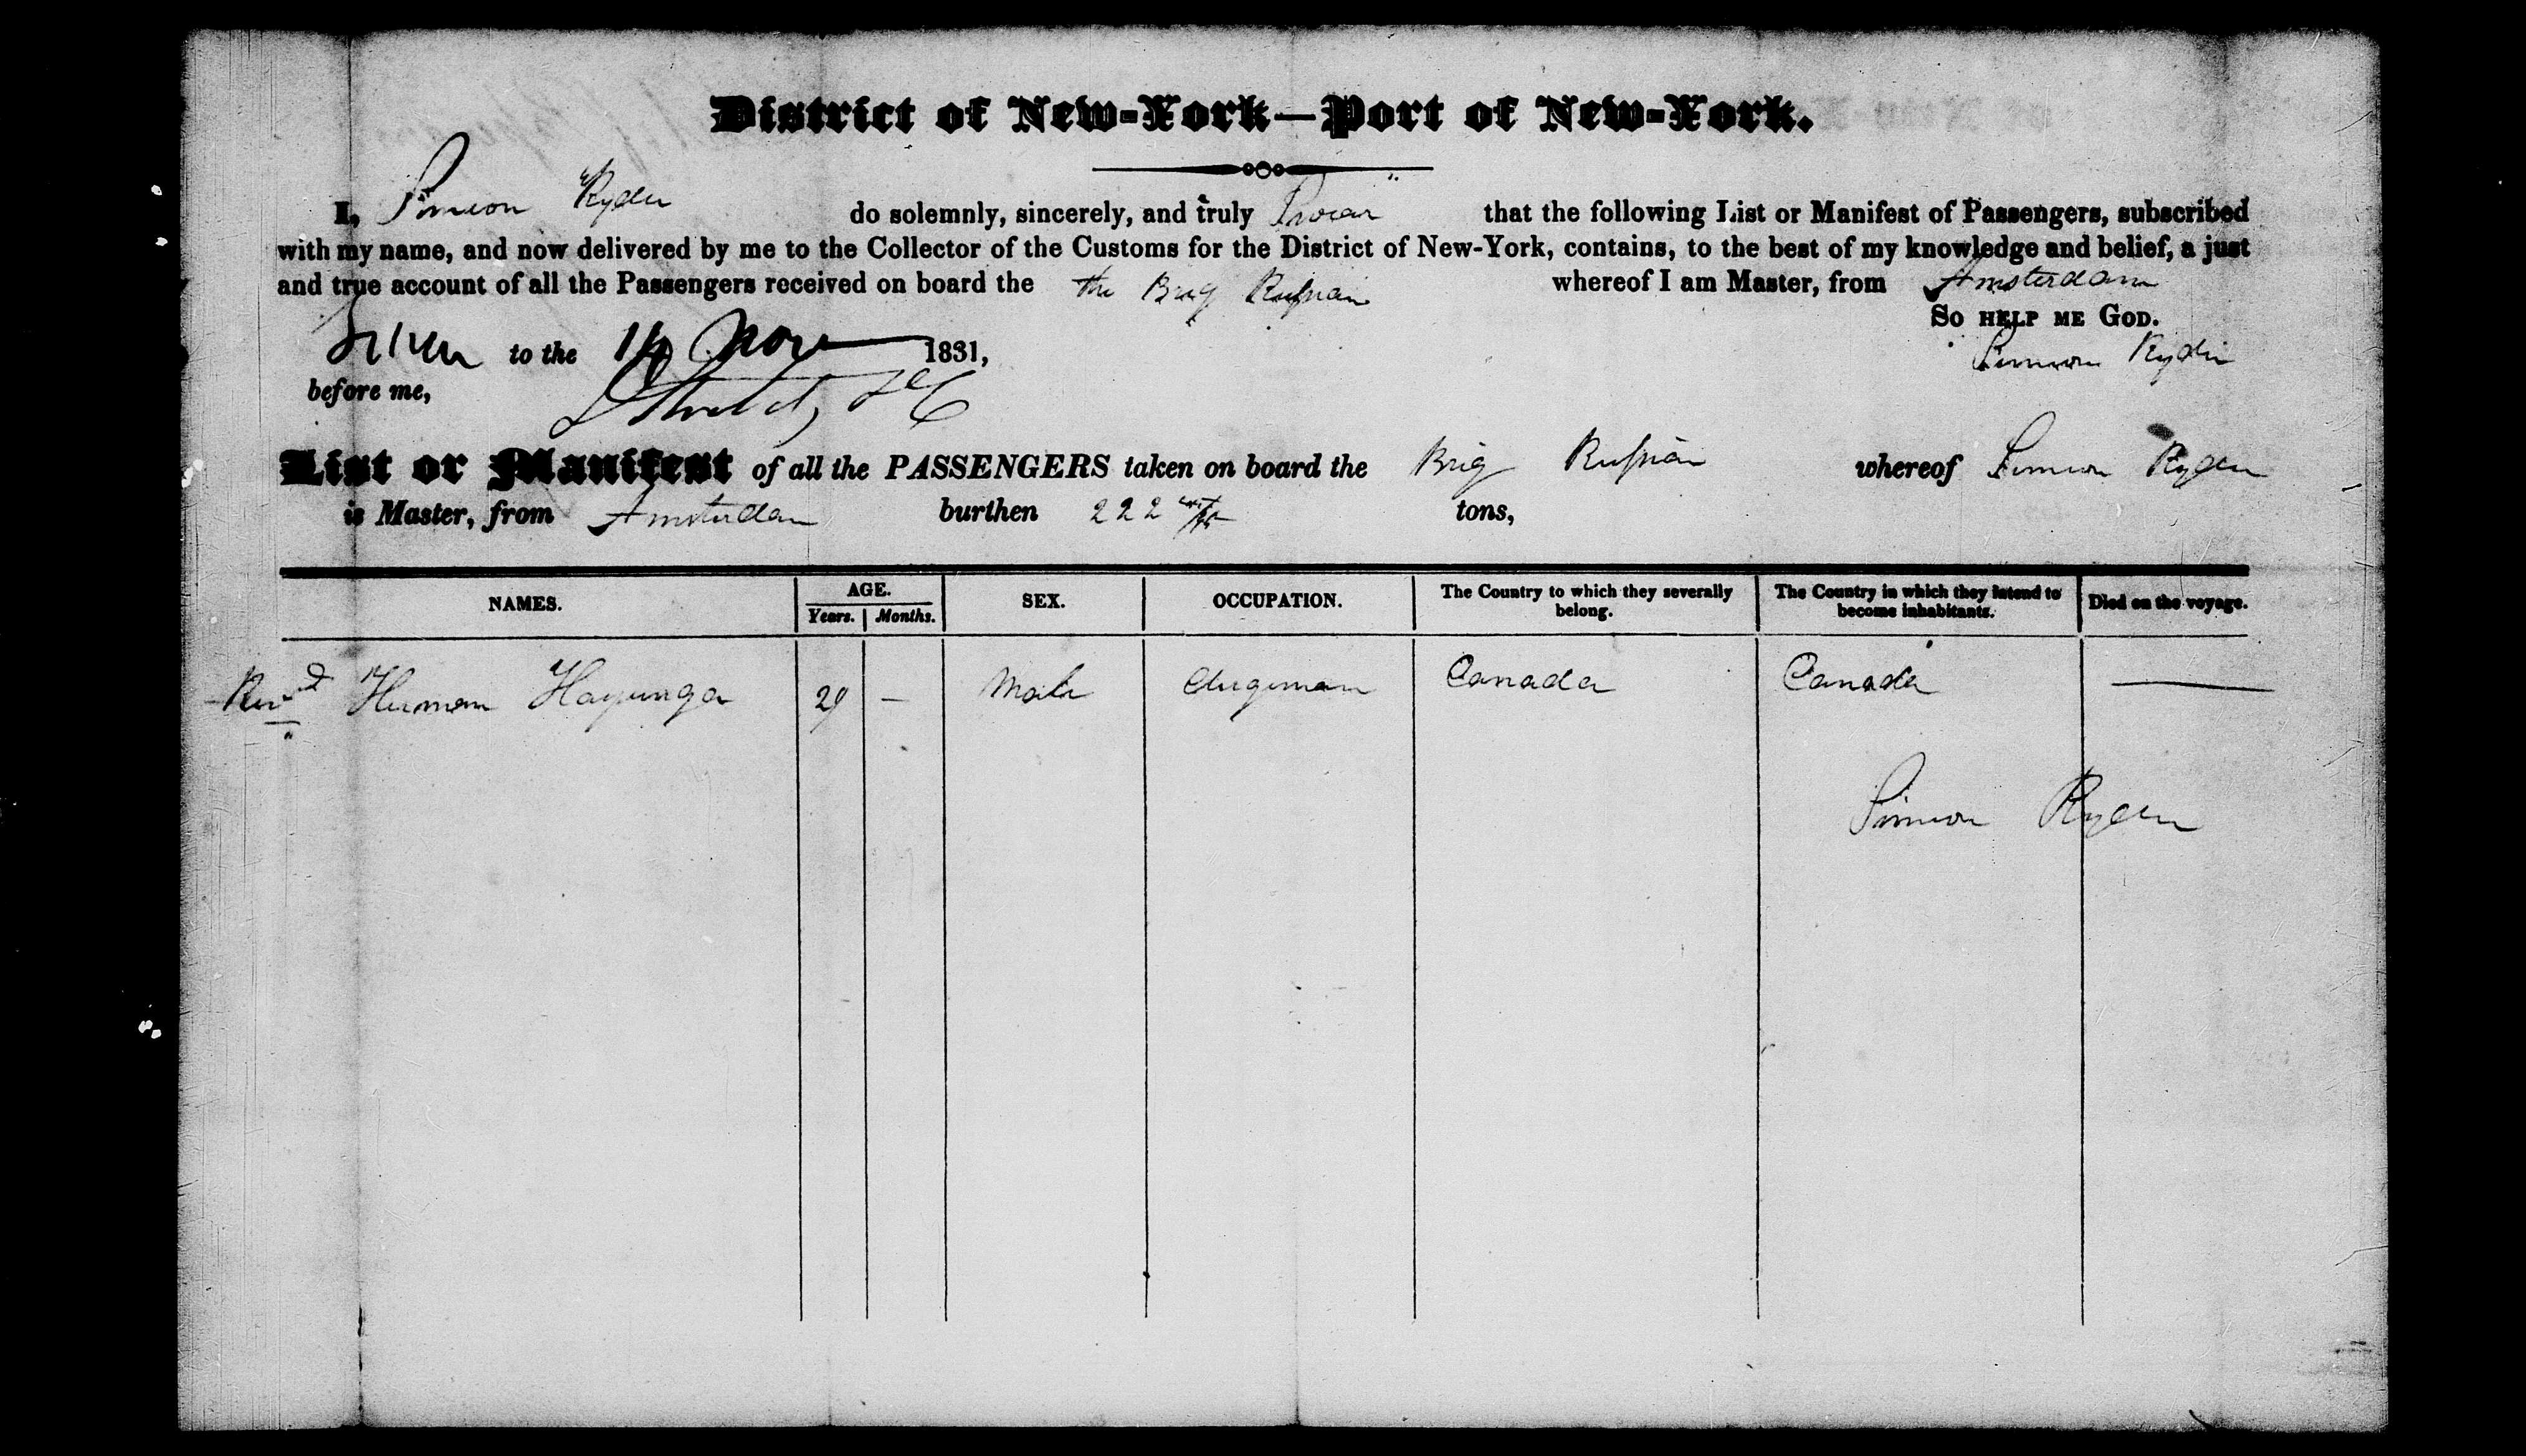 District of New-York—Port of New-York.
I, Simeon Ryder do solemnly, sincerely, and truly Swear that the following List or Manifest of Passengers, subscribed
with my name, and now delivered by me to the Collector of the Customs for the District of New-York, contains, to the best of my knowledge and belief, a just
and true account of all the Passengers received on board the the Brig Russian whereof I am Master, from Amsterdam
So help me God.
to the 14 Nov 1831, Simeon Ryder
before me,
List or Manifest of all the PASSENGERS taken on board the Brig Russian whereof Simeon Ryder
is Master, from Amsterdam burthen 222 tons,
NAMES. AGE. Years. Months. SEX. OCCUPATION. The Country to which they severally belong. The Country in which they intend to become inhabitants. Died on the voyage.
Revd Herman Hayunga 29 — Male Clergeman Canada Canada —
Simeon Ryder